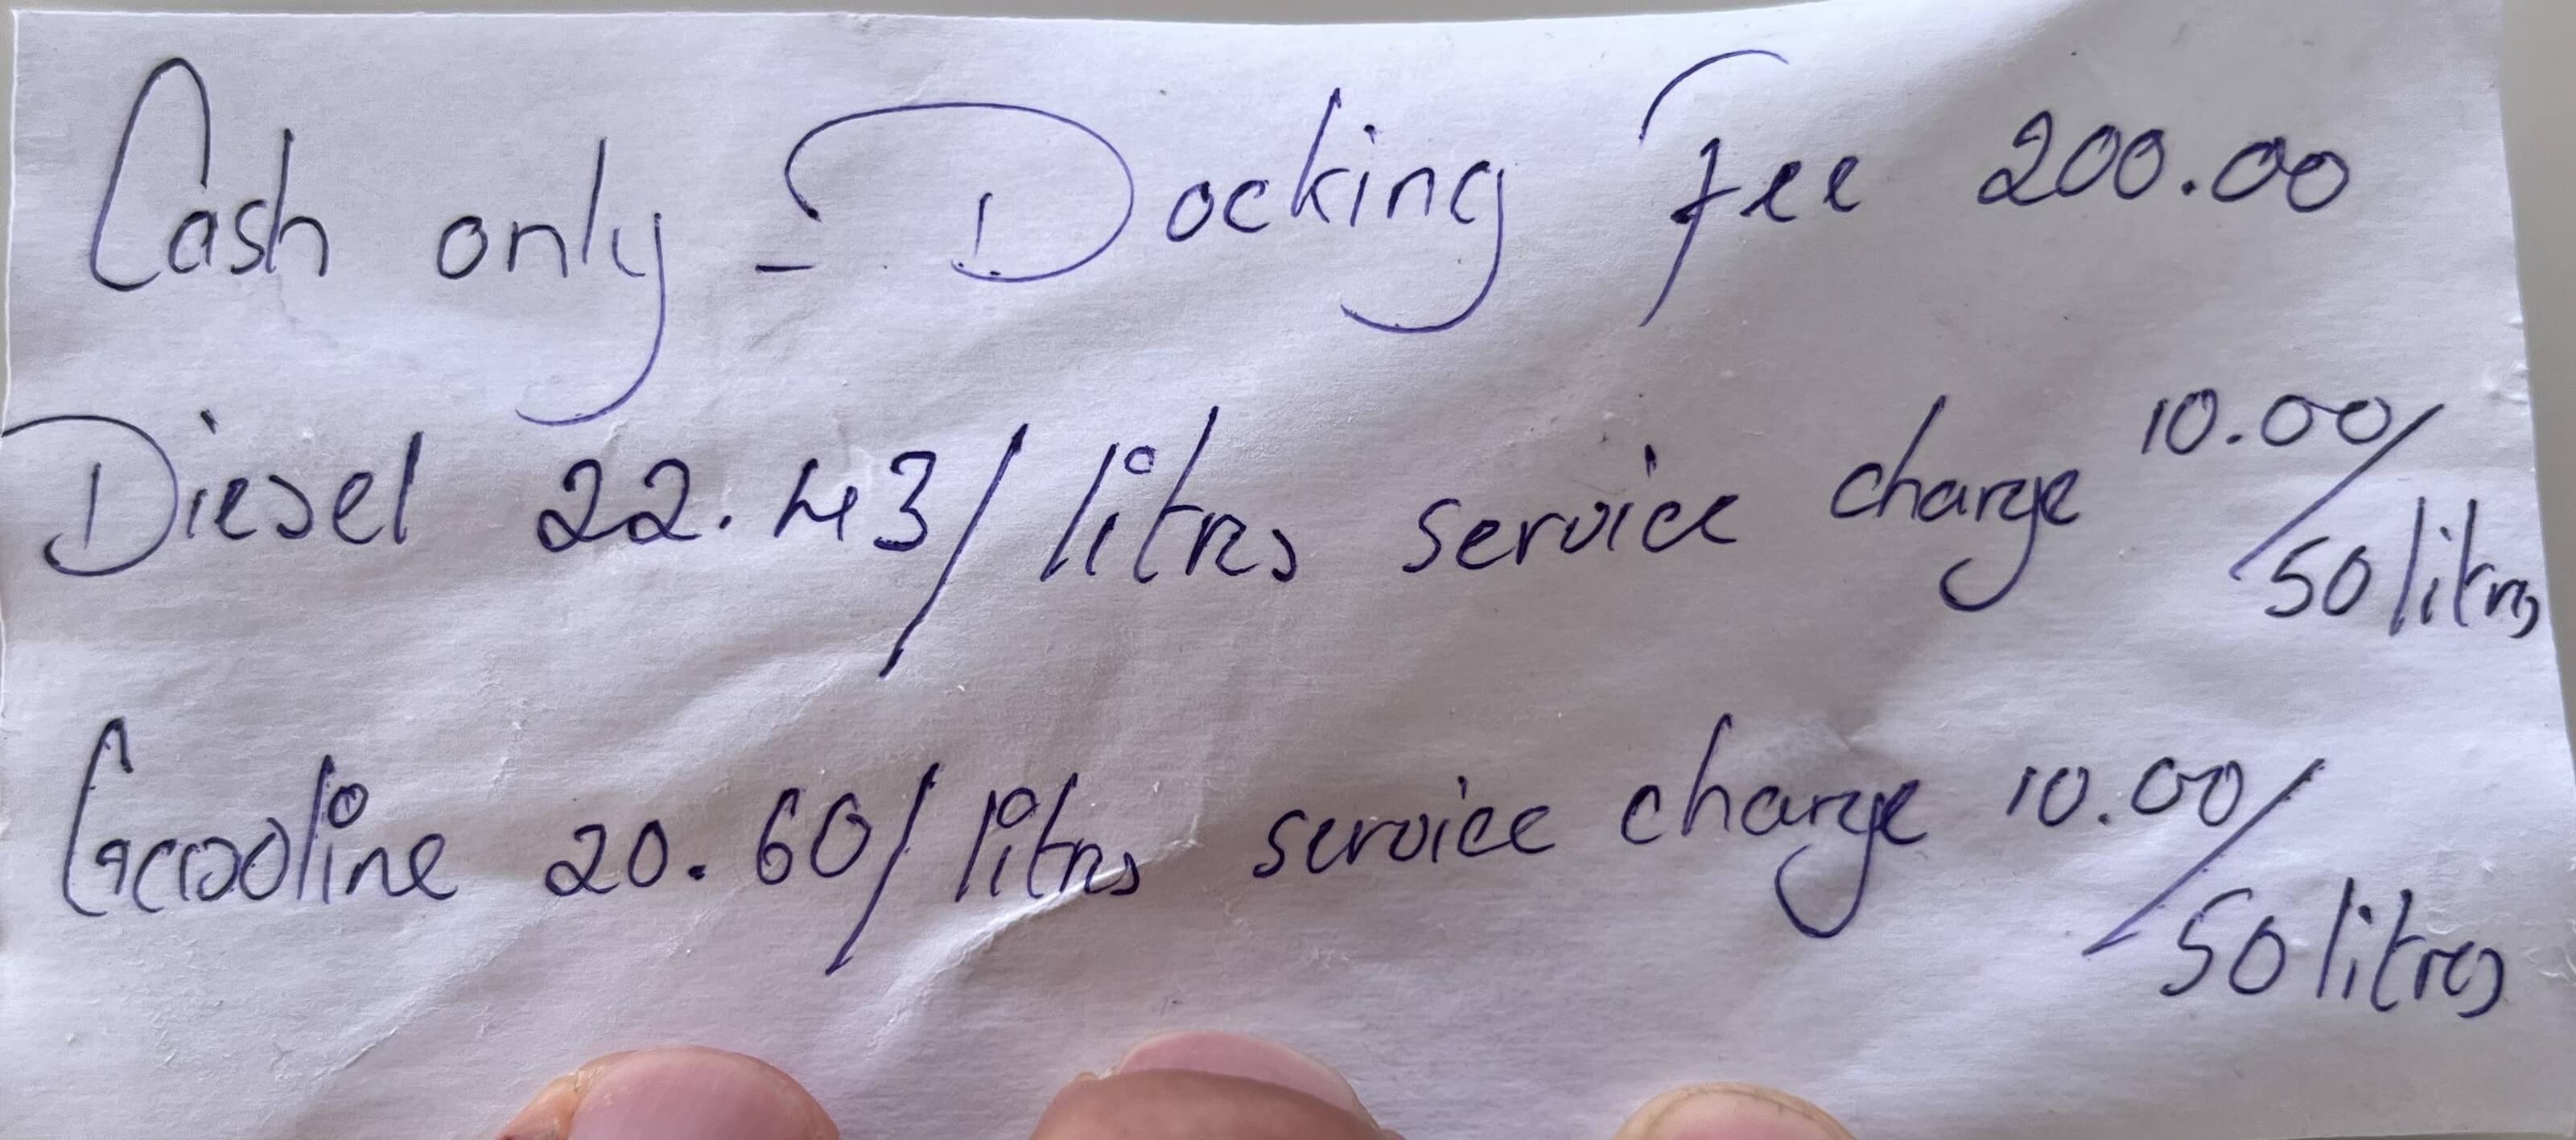 Cash only - Docking fee 200.00
Diesel 22.43/litres service charge 10.00/50 litres
Gasoline 20.60/litres service charge 10.00/50 litres